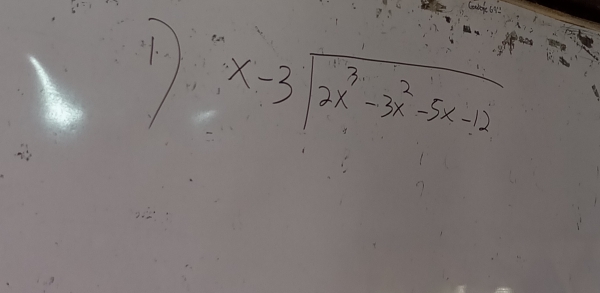 1) x-3 | 2x³ - 3x² - 5x - 12